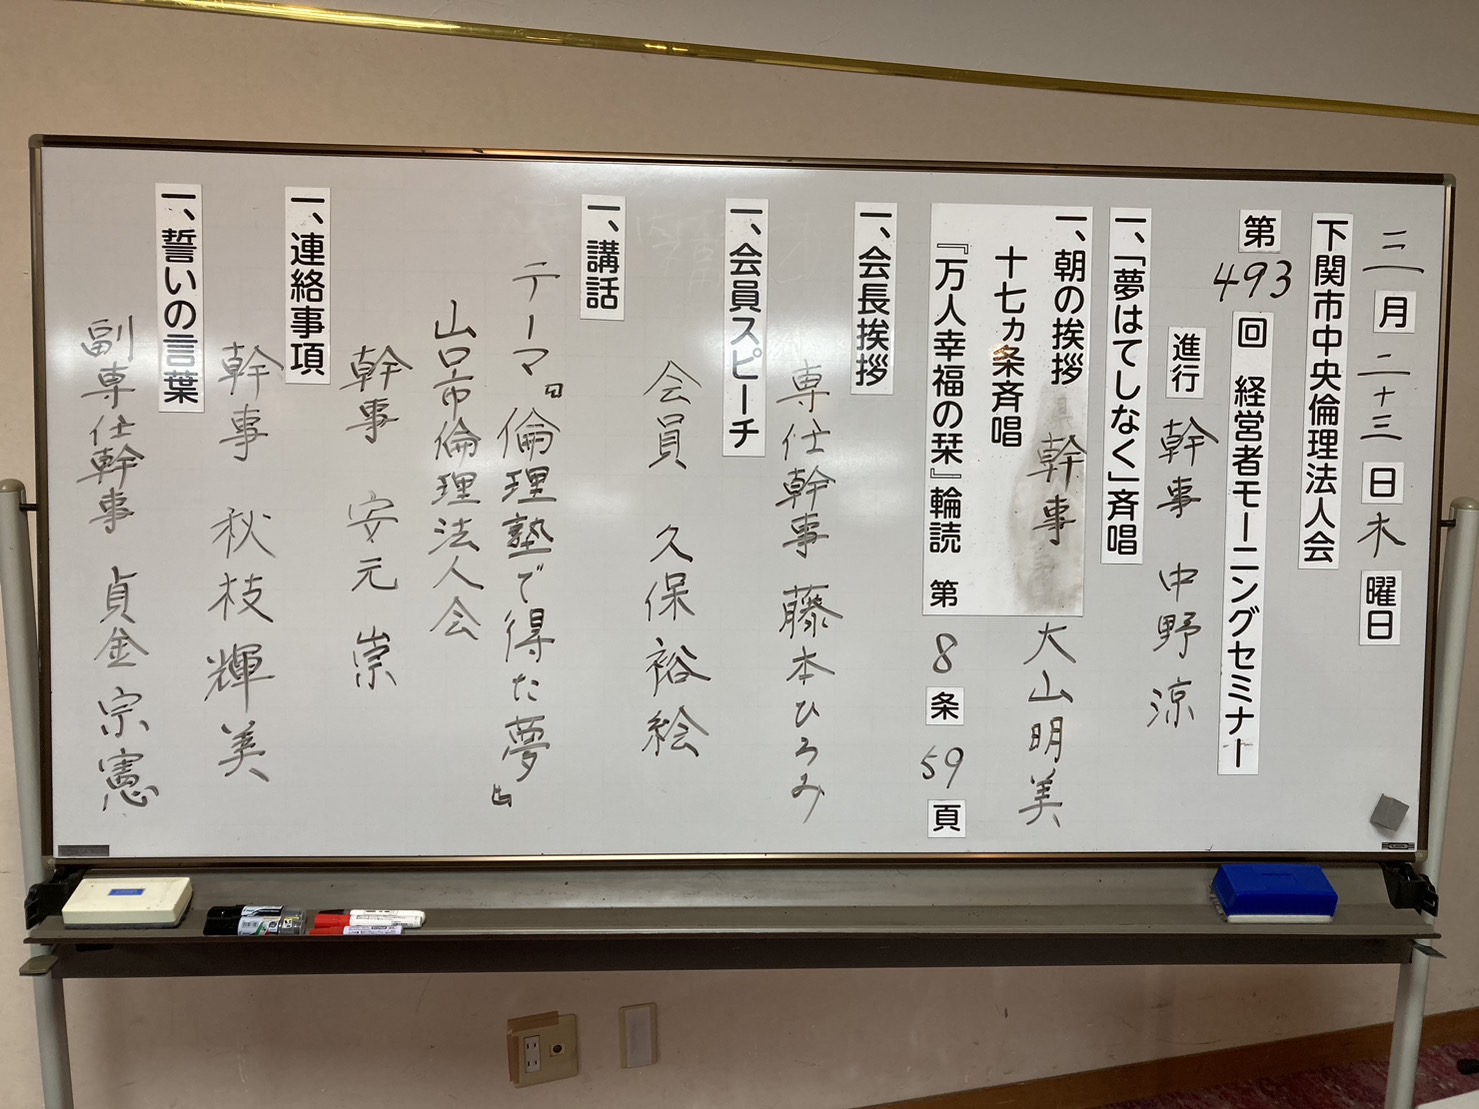 三月二十三日木曜日
下関市中央倫理法人会
第493回 経営者モーニングセミナー
進行 幹事 中野 涼
一、「夢はてしなく」斉唱
一、朝の挨拶 幹事 大山明美
十七ヵ条斉唱
『万人幸福の栞』輪読 第8条59頁
一、会長挨拶
専任幹事 藤本ひろみ
一、会員スピーチ
会員 久保裕絵
一、講話
テーマ『倫理塾で得た夢』
山口市倫理法人会
幹事 安元 崇
一、連絡事項
幹事 秋枝輝美
一、誓いの言葉
副専任幹事 貞金宗憲